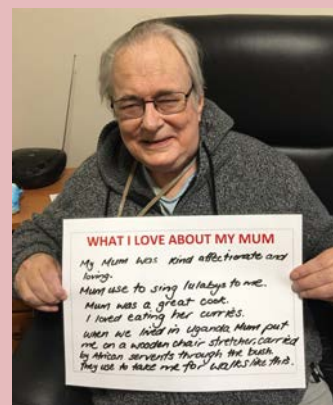 WHAT I LOVE ABOUT MY MUM
My Mum was kind affectionate and
loving.
Mum use to sing lulabys to me.
Mum was a great cook.
I loved eating her curries.
When we lived in Uganda, Mum put
me on a wooden chair stretcher, carried
by African servents through the bush.
They use to take me for walks like this.